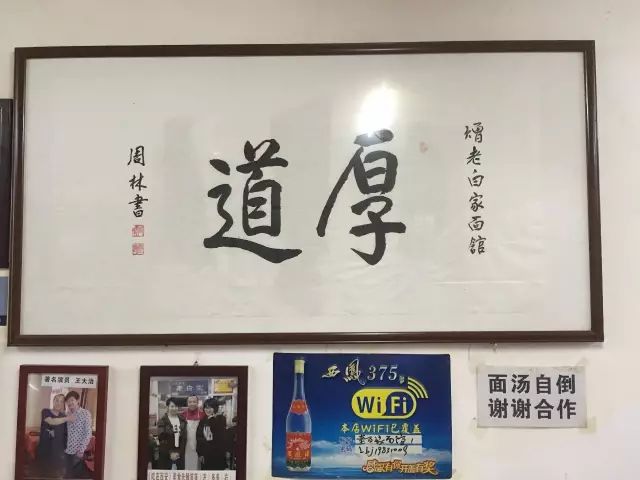 赠老白家面馆
厚道
周林書
著名演员 王大治
西鳳375
WiFi
本店WiFi已覆盖
感恩有你 开瓶有奖
面汤自倒
谢谢合作